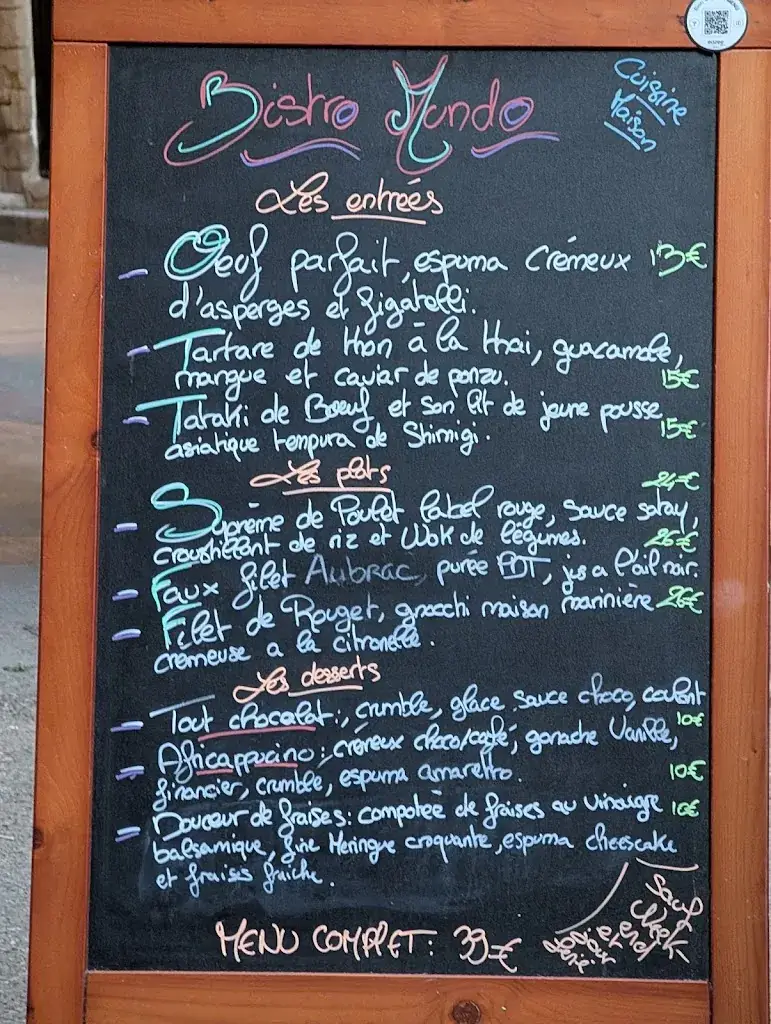 Bistro Mundo
Cuisine
Maison
Les entrées
- Oeuf parfait, espuma crémeux 13€
d'asperges et figatelli.
- Tartare de thon à la thai, guacamole,
mangue et caviar de ponzu. 15€
- Tataki de Boeuf et son lit de jeune pousse
asiatique tempura de Shimigi. 15€
Les plats
24€
- Suprème de Poulet label rouge, sauce satay,
croustillant de riz et Wok de légumes. 26€
- Faux filet Aubrac, purée PDT, jus a l'ail noir.
- Filet de Rouget, gnocchi maison marinière 26€
crémeuse a la citronelle.
Les desserts
- Tout chocolat:, crumble, glace sauce choco, coulant
10€
- Africappucino: crémeux choco/café, ganache Vanille,
financier, crumble, espuma amaretto. 10€
- Douceur de fraises: compotée de fraises au vinaigre 10€
balsamique, fine Meringue croquante, espuma cheescake
et fraises fraiche.
MENU COMPLET: 39€
Sauf
week
end
soir